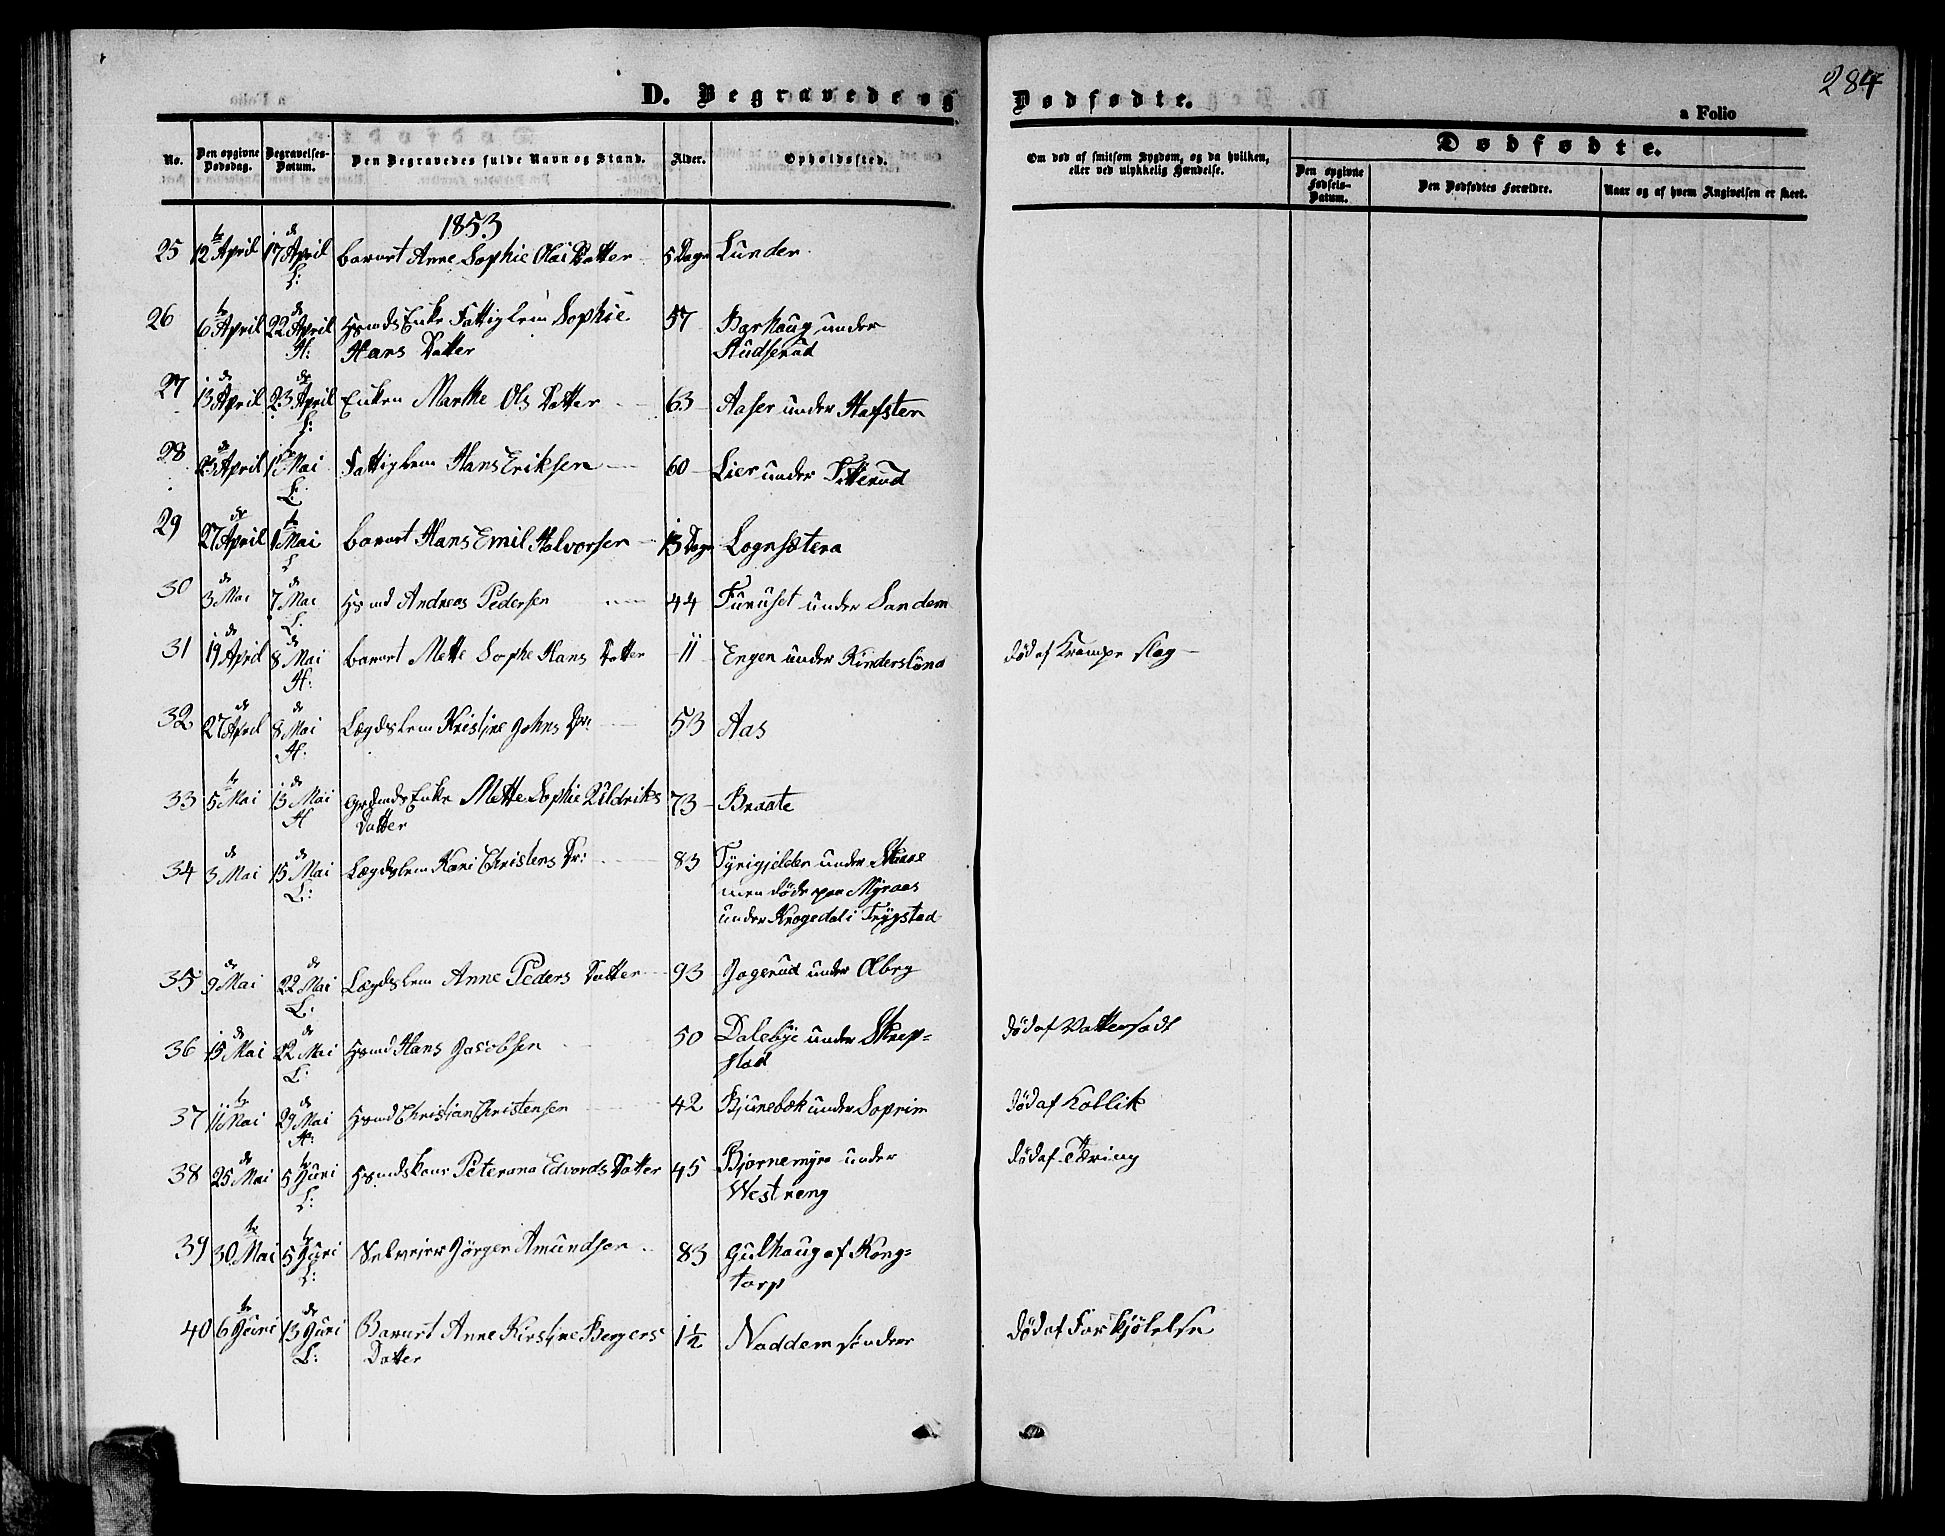 284
D. Begravede og Dødfødte.
a Folio
No. Den opgivne Dødsdag. Begravelses-Datum. Den Begravedes fulde Navn og Stand. Alder. Opholdssted. Om død af smitsom Sygdom, og da hvilken, eller ved ulykkelig Hændelse. Dødfødte. Den opgivne Fødsels-Datum. Den Dødfødtes Forældre. Naar og af hvem Angivelsen er skeet.
1853
25 12te April 17de April L: barnet Anne Sophie Olai Datter 5 Dage Lunder
26 6te April 22de April H: Hsmds Enke Fattiglem Sophie 57 Barhaug under
Hans Datter Studserud
27 13de April 23de April L: Enken Marthe Ols Datter 63 Aaser under Hafsten
28 25de April 1te Mai L: Fattiglem Hans Eriksen 60 Lier under Titterud
29 27de April 1te Mai L barnet Hans Emil Halvorsen 13 Dage Lognsætera
30 3de Mai 7de Mai L: Hsmd Andreas Pedersen 44 Furuset under Sandem
31 19de April 8de Mai H: barnet Mette Sophe Hans Datter 11 Engen under Rinderslund død af Krampe slag
32 27de April 8de Mai H: Lægdslem Kristine Johns Dr: 53 Aas
33 5te Mai 13de Mai H Grdmds Enke Mette Sophie Uldriks 73 Braate
Datter
34 3de Mai 15de Mai L: Lægdslem Kari Christens Dr: 83 Tyrigjelden under Skaae
men døde paa Myraas
under Krogedal i Trygstad
35 9de Mai 22de Mai L: Lægdslem Anne Peders Datter 93 Jagerud under Øbrg
36 15de Mai 22de Mai L: Hsmd Hans Jacobsen 50 Dalebye under Skrep=
stad død af Vattersodt
37 11te Mai 29de Mai H: Hsmd Christjan Christensen 42 Bjurebæk under Soprim død af Kollik
38 25de Mai 5te Juni L: Hsmdskone Peterana Edvards Datter 45 Bjørnemyra under
Westreng død af Tæring
39 30te Mai 5te Juni L: Selveier Jörgen Amundsen 83 Gulhaug af Kong=
torp
40 6te Juni 13de Juni L: Barnet Anne Kirstine Bergers 1½ Naddemstrander død af Forkjølelse
Datter